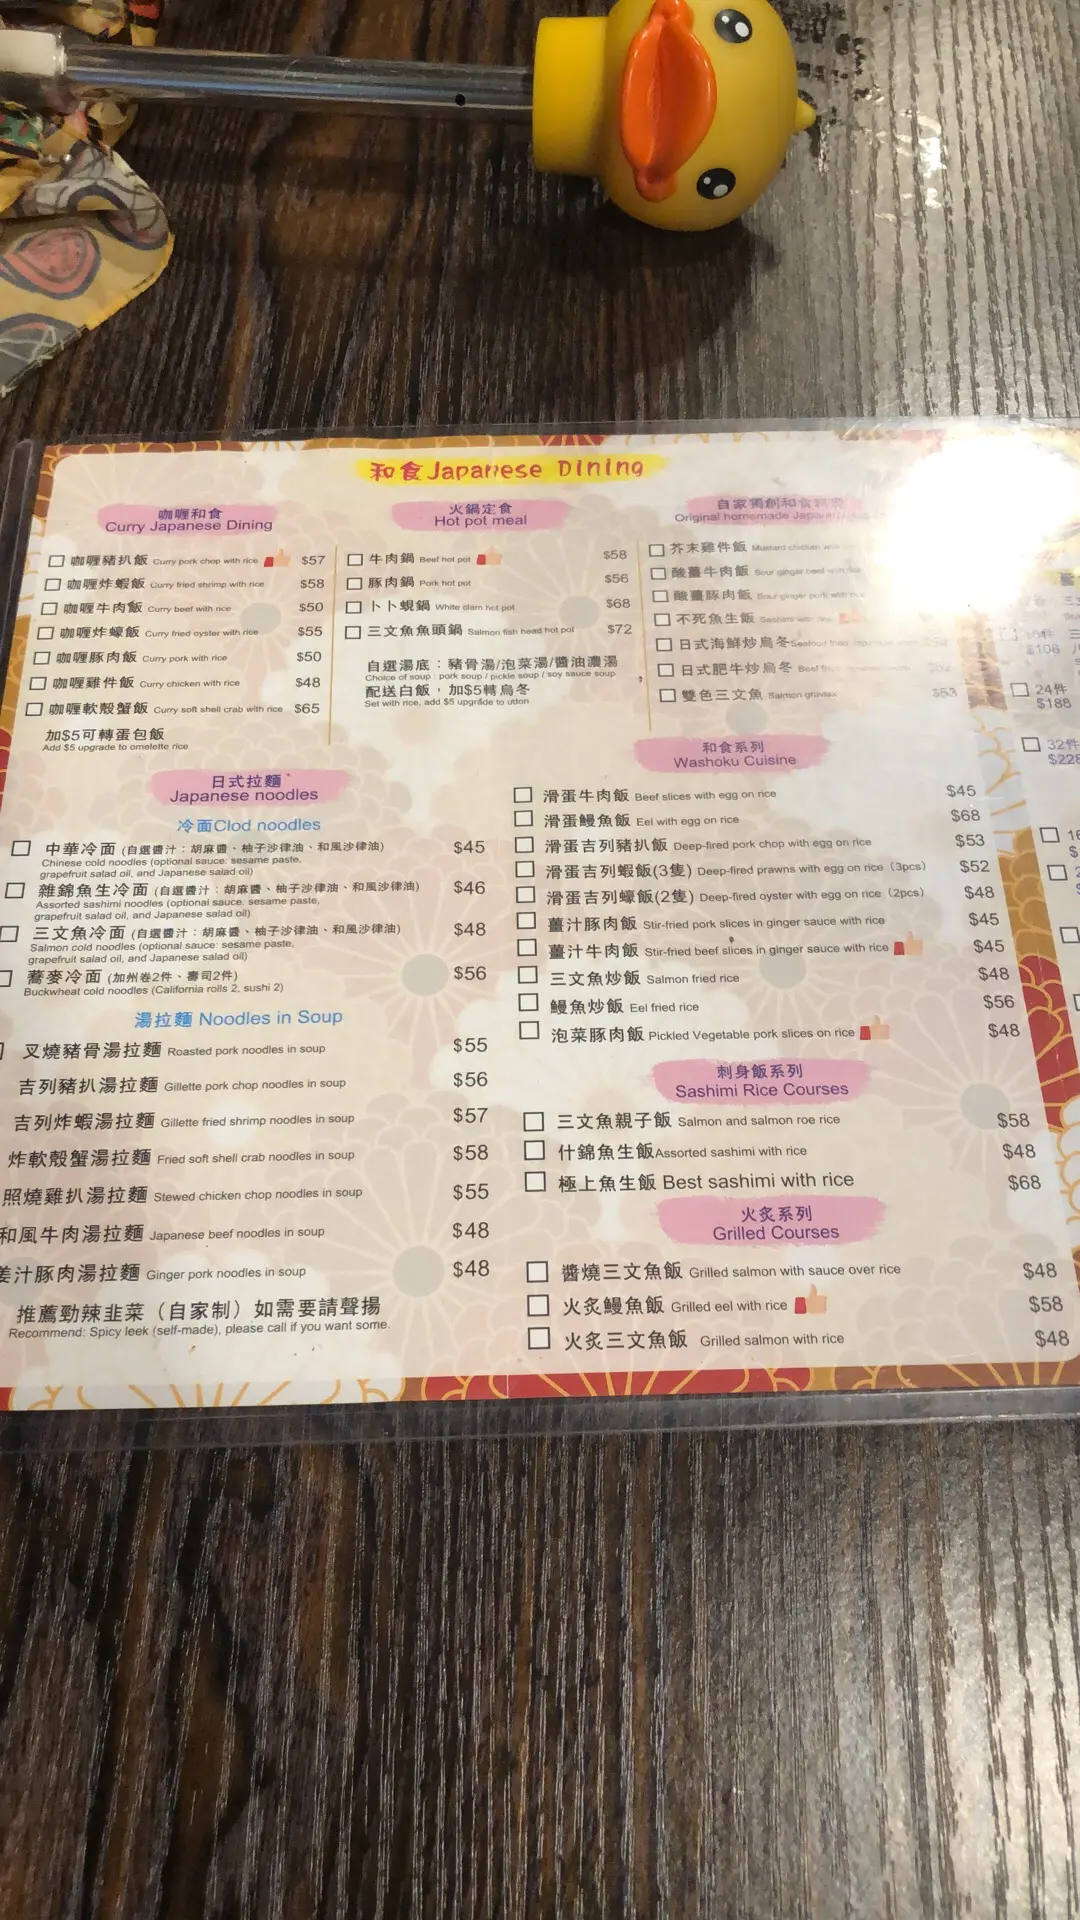 和食Japanese Dining
咖喱和食
Curry Japanese Dining
咖喱豬扒飯 Curry pork chop with rice $57
咖喱炸蝦飯 Curry fried shrimp with rice $58
咖喱牛肉飯 Curry beef with rice $50
咖喱炸蠔飯 Curry fried oyster with rice $55
咖喱豚肉飯 Curry pork with rice $50
咖喱雞件飯 Curry chicken with rice $48
咖喱軟殼蟹飯 Curry soft shell crab with rice $65
加$5可轉蛋包飯
Add $5 upgrade to omelette rice
火鍋定食
Hot pot meal
牛肉鍋 Beef hot pot $58
豚肉鍋 Pork hot pot $56
卜卜蜆鍋 White clam hot pot $68
三文魚魚頭鍋 Salmon fish head hot pot $72
自選湯底：豬骨湯/泡菜湯/醬油濃湯
Choice of soup : pork soup / pickle soup / soy sauce soup
配送白飯，加$5轉烏冬
Set with rice, add $5 upgrade to udon
自家獨創和食
Original homemade
芥末雞件飯 Mustard chicken
酸薑牛肉飯 Sour ginger beef with
酸薑豚肉飯 Sour ginger pork with
不死魚生飯 Sashimi with
日式海鮮炒烏冬 Seafood fried
日式肥牛炒烏冬 Beef
雙色三文魚 Salmon gravlax $53
日式拉麵
Japanese noodles
冷面Clod noodles
中華冷面 (自選醬汁：胡麻醬、柚子沙律油、和風沙律油) $45
Chinese cold noodles (optional sauce: sesame paste,
grapefruit salad oil, and Japanese salad oil)
雜錦魚生冷面 (自選醬汁：胡麻醬、柚子沙律油、和風沙律油) $46
Assorted sashimi noodles (optional sauce: sesame paste,
grapefruit salad oil, and Japanese salad oil)
三文魚冷面 (自選醬汁：胡麻醬、柚子沙律油、和風沙律油) $48
Salmon cold noodles (optional sauce: sesame paste,
grapefruit salad oil, and Japanese salad oil)
蕎麥冷面 (加州卷2件、壽司2件) $56
Buckwheat cold noodles (California rolls 2, sushi 2)
湯拉麵 Noodles in Soup
叉燒豬骨湯拉麵 Roasted pork noodles in soup $55
吉列豬扒湯拉麵 Gillette pork chop noodles in soup $56
吉列炸蝦湯拉麵 Gillette fried shrimp noodles in soup $57
炸軟殼蟹湯拉麵 Fried soft shell crab noodles in soup $58
照燒雞扒湯拉麵 Stewed chicken chop noodles in soup $55
和風牛肉湯拉麵 Japanese beef noodles in soup $48
姜汁豚肉湯拉麵 Ginger pork noodles in soup $48
推薦勁辣韭菜（自家制）如需要請聲揚
Recommend: Spicy leek (self-made), please call if you want some.
和食系列
Washoku Cuisine
滑蛋牛肉飯 Beef slices with egg on rice $45
滑蛋鰻魚飯 Eel with egg on rice $68
滑蛋吉列豬扒飯 Deep-fired pork chop with egg on rice $53
滑蛋吉列蝦飯(3隻) Deep-fired prawns with egg on rice（3pcs） $52
滑蛋吉列蠔飯(2隻) Deep-fired oyster with egg on rice（2pcs） $48
薑汁豚肉飯 Stir-fried pork slices in ginger sauce with rice $45
薑汁牛肉飯 Stir-fried beef slices in ginger sauce with rice $45
三文魚炒飯 Salmon fried rice $48
鰻魚炒飯 Eel fried rice $56
泡菜豚肉飯 Pickled Vegetable pork slices on rice $48
刺身飯系列
Sashimi Rice Courses
三文魚親子飯 Salmon and salmon roe rice $58
什錦魚生飯Assorted sashimi with rice $48
極上魚生飯 Best sashimi with rice $68
火炙系列
Grilled Courses
醬燒三文魚飯 Grilled salmon with sauce over rice $48
火炙鰻魚飯 Grilled eel with rice $58
火炙三文魚飯 Grilled salmon with rice $48
$108
24件
$188
32件
$228